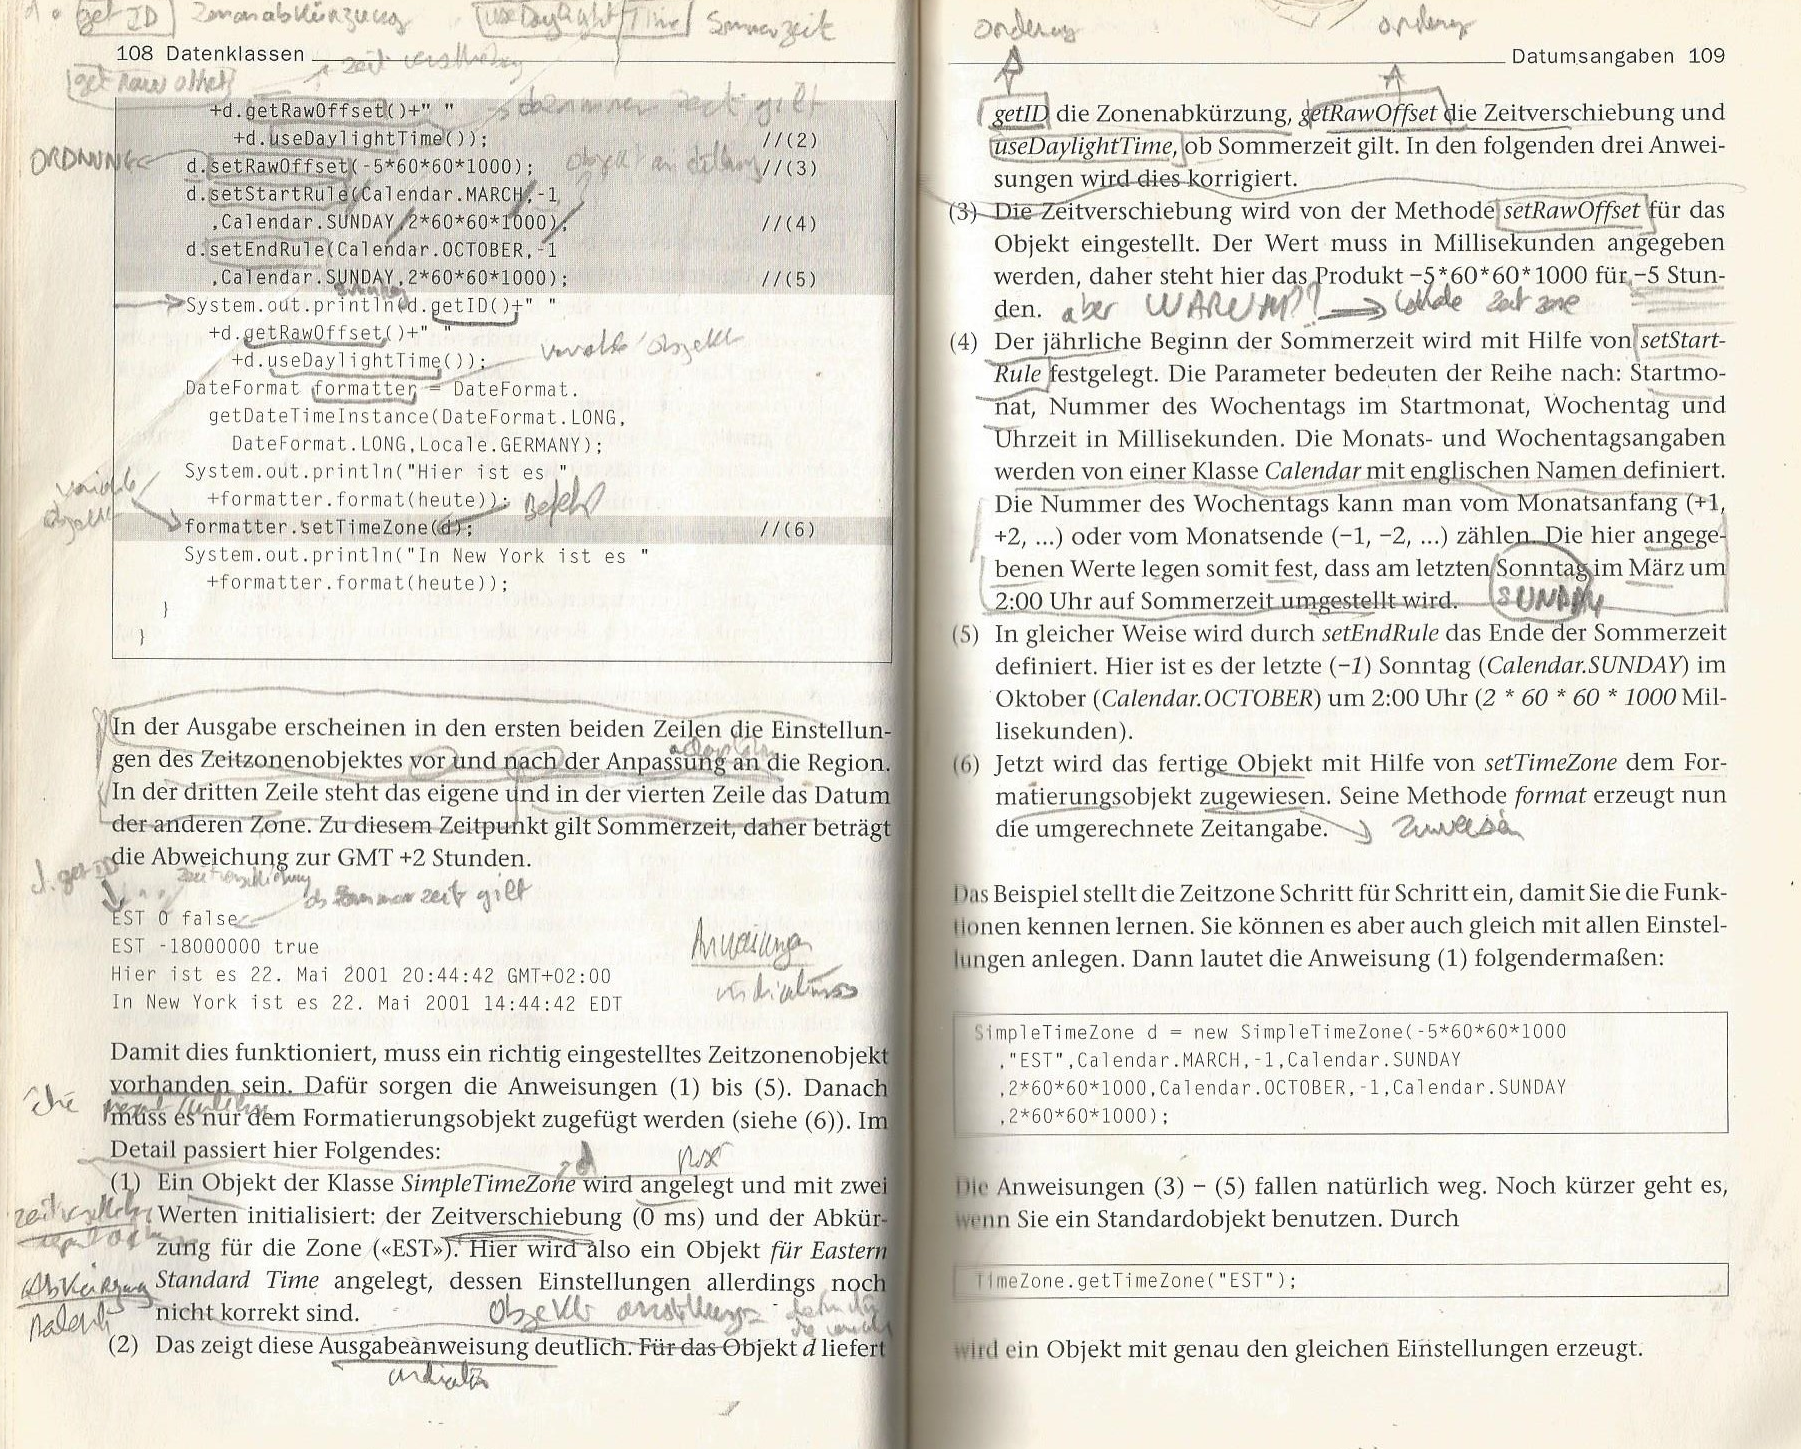 getID Zonenabkürzung useDaylightTime Sommerzeit
108 Datenklassen
zeit verschiebung
get Raw offset
zeit gilt
+d.getRawOffset()+" "
+d.useDaylightTime()); //(2)
ORDNUNG
d.setRawOffset(-5*60*60*1000); //(3)
d.setStartRule(Calendar.MARCH,-1
,Calendar.SUNDAY,2*60*60*1000); //(4)
d.setEndRule(Calendar.OCTOBER,-1
,Calendar.SUNDAY,2*60*60*1000); //(5)
System.out.println(d.getID()+" "
+d.getRawOffset()+" "
+d.useDaylightTime());
variable/objekt
DateFormat formatter = DateFormat.
getDateTimeInstance(DateFormat.LONG,
DateFormat.LONG,Locale.GERMANY);
System.out.println("Hier ist es "
+formatter.format(heute));
Befehl
variable/
objekt
formatter.setTimeZone(d); //(6)
System.out.println("In New York ist es "
+formatter.format(heute));
}
}
In der Ausgabe erscheinen in den ersten beiden Zeilen die Einstellun-
gen des Zeitzonenobjektes vor und nach der Anpassung an die Region.
In der dritten Zeile steht das eigene und in der vierten Zeile das Datum
der anderen Zone. Zu diesem Zeitpunkt gilt Sommerzeit, daher beträgt
die Abweichung zur GMT +2 Stunden.
d.getID
zeitverschiebung
ob Sommerzeit gilt
EST 0 false
EST -18000000 true
Hier ist es 22. Mai 2001 20:44:42 GMT+02:00
In New York ist es 22. Mai 2001 14:44:42 EDT
Anweisungen
Damit dies funktioniert, muss ein richtig eingestelltes Zeitzonenobjekt
vorhanden sein. Dafür sorgen die Anweisungen (1) bis (5). Danach
muss es nur dem Formatierungsobjekt zugefügt werden (siehe (6)). Im
Detail passiert hier Folgendes:
(1) Ein Objekt der Klasse SimpleTimeZone wird angelegt und mit zwei
Werten initialisiert: der Zeitverschiebung (0 ms) und der Abkür-
zung für die Zone («EST»). Hier wird also ein Objekt für Eastern
Standard Time angelegt, dessen Einstellungen allerdings noch
nicht korrekt sind.
Abkürzung
(2) Das zeigt diese Ausgabeanweisung deutlich. Für das Objekt d liefert
ordnung
ordnung
Datumsangaben 109
getID die Zonenabkürzung, getRawOffset die Zeitverschiebung und
useDaylightTime, ob Sommerzeit gilt. In den folgenden drei Anwei-
sungen wird dies korrigiert.
(3) Die Zeitverschiebung wird von der Methode setRawOffset für das
Objekt eingestellt. Der Wert muss in Millisekunden angegeben
werden, daher steht hier das Produkt –5*60*60*1000 für –5 Stun-
den. aber WARUM?? zeit zone
(4) Der jährliche Beginn der Sommerzeit wird mit Hilfe von setStart-
Rule festgelegt. Die Parameter bedeuten der Reihe nach: Startmo-
nat, Nummer des Wochentags im Startmonat, Wochentag und
Uhrzeit in Millisekunden. Die Monats- und Wochentagsangaben
werden von einer Klasse Calendar mit englischen Namen definiert.
Die Nummer des Wochentags kann man vom Monatsanfang (+1,
+2, ...) oder vom Monatsende (–1, –2, ...) zählen. Die hier angege-
benen Werte legen somit fest, dass am letzten Sonntag im März um
2:00 Uhr auf Sommerzeit umgestellt wird. SUNDAY
(5) In gleicher Weise wird durch setEndRule das Ende der Sommerzeit
definiert. Hier ist es der letzte (–1) Sonntag (Calendar.SUNDAY) im
Oktober (Calendar.OCTOBER) um 2:00 Uhr (2 * 60 * 60 * 1000 Mil-
lisekunden).
(6) Jetzt wird das fertige Objekt mit Hilfe von setTimeZone dem For-
matierungsobjekt zugewiesen. Seine Methode format erzeugt nun
die umgerechnete Zeitangabe. zuweisen
Das Beispiel stellt die Zeitzone Schritt für Schritt ein, damit Sie die Funk-
tionen kennen lernen. Sie können es aber auch gleich mit allen Einstel-
lungen anlegen. Dann lautet die Anweisung (1) folgendermaßen:
SimpleTimeZone d = new SimpleTimeZone(-5*60*60*1000
,"EST",Calendar.MARCH,-1,Calendar.SUNDAY
,2*60*60*1000,Calendar.OCTOBER,-1,Calendar.SUNDAY
,2*60*60*1000);
Die Anweisungen (3) – (5) fallen natürlich weg. Noch kürzer geht es,
wenn Sie ein Standardobjekt benutzen. Durch
TimeZone.getTimeZone("EST");
wird ein Objekt mit genau den gleichen Einstellungen erzeugt.